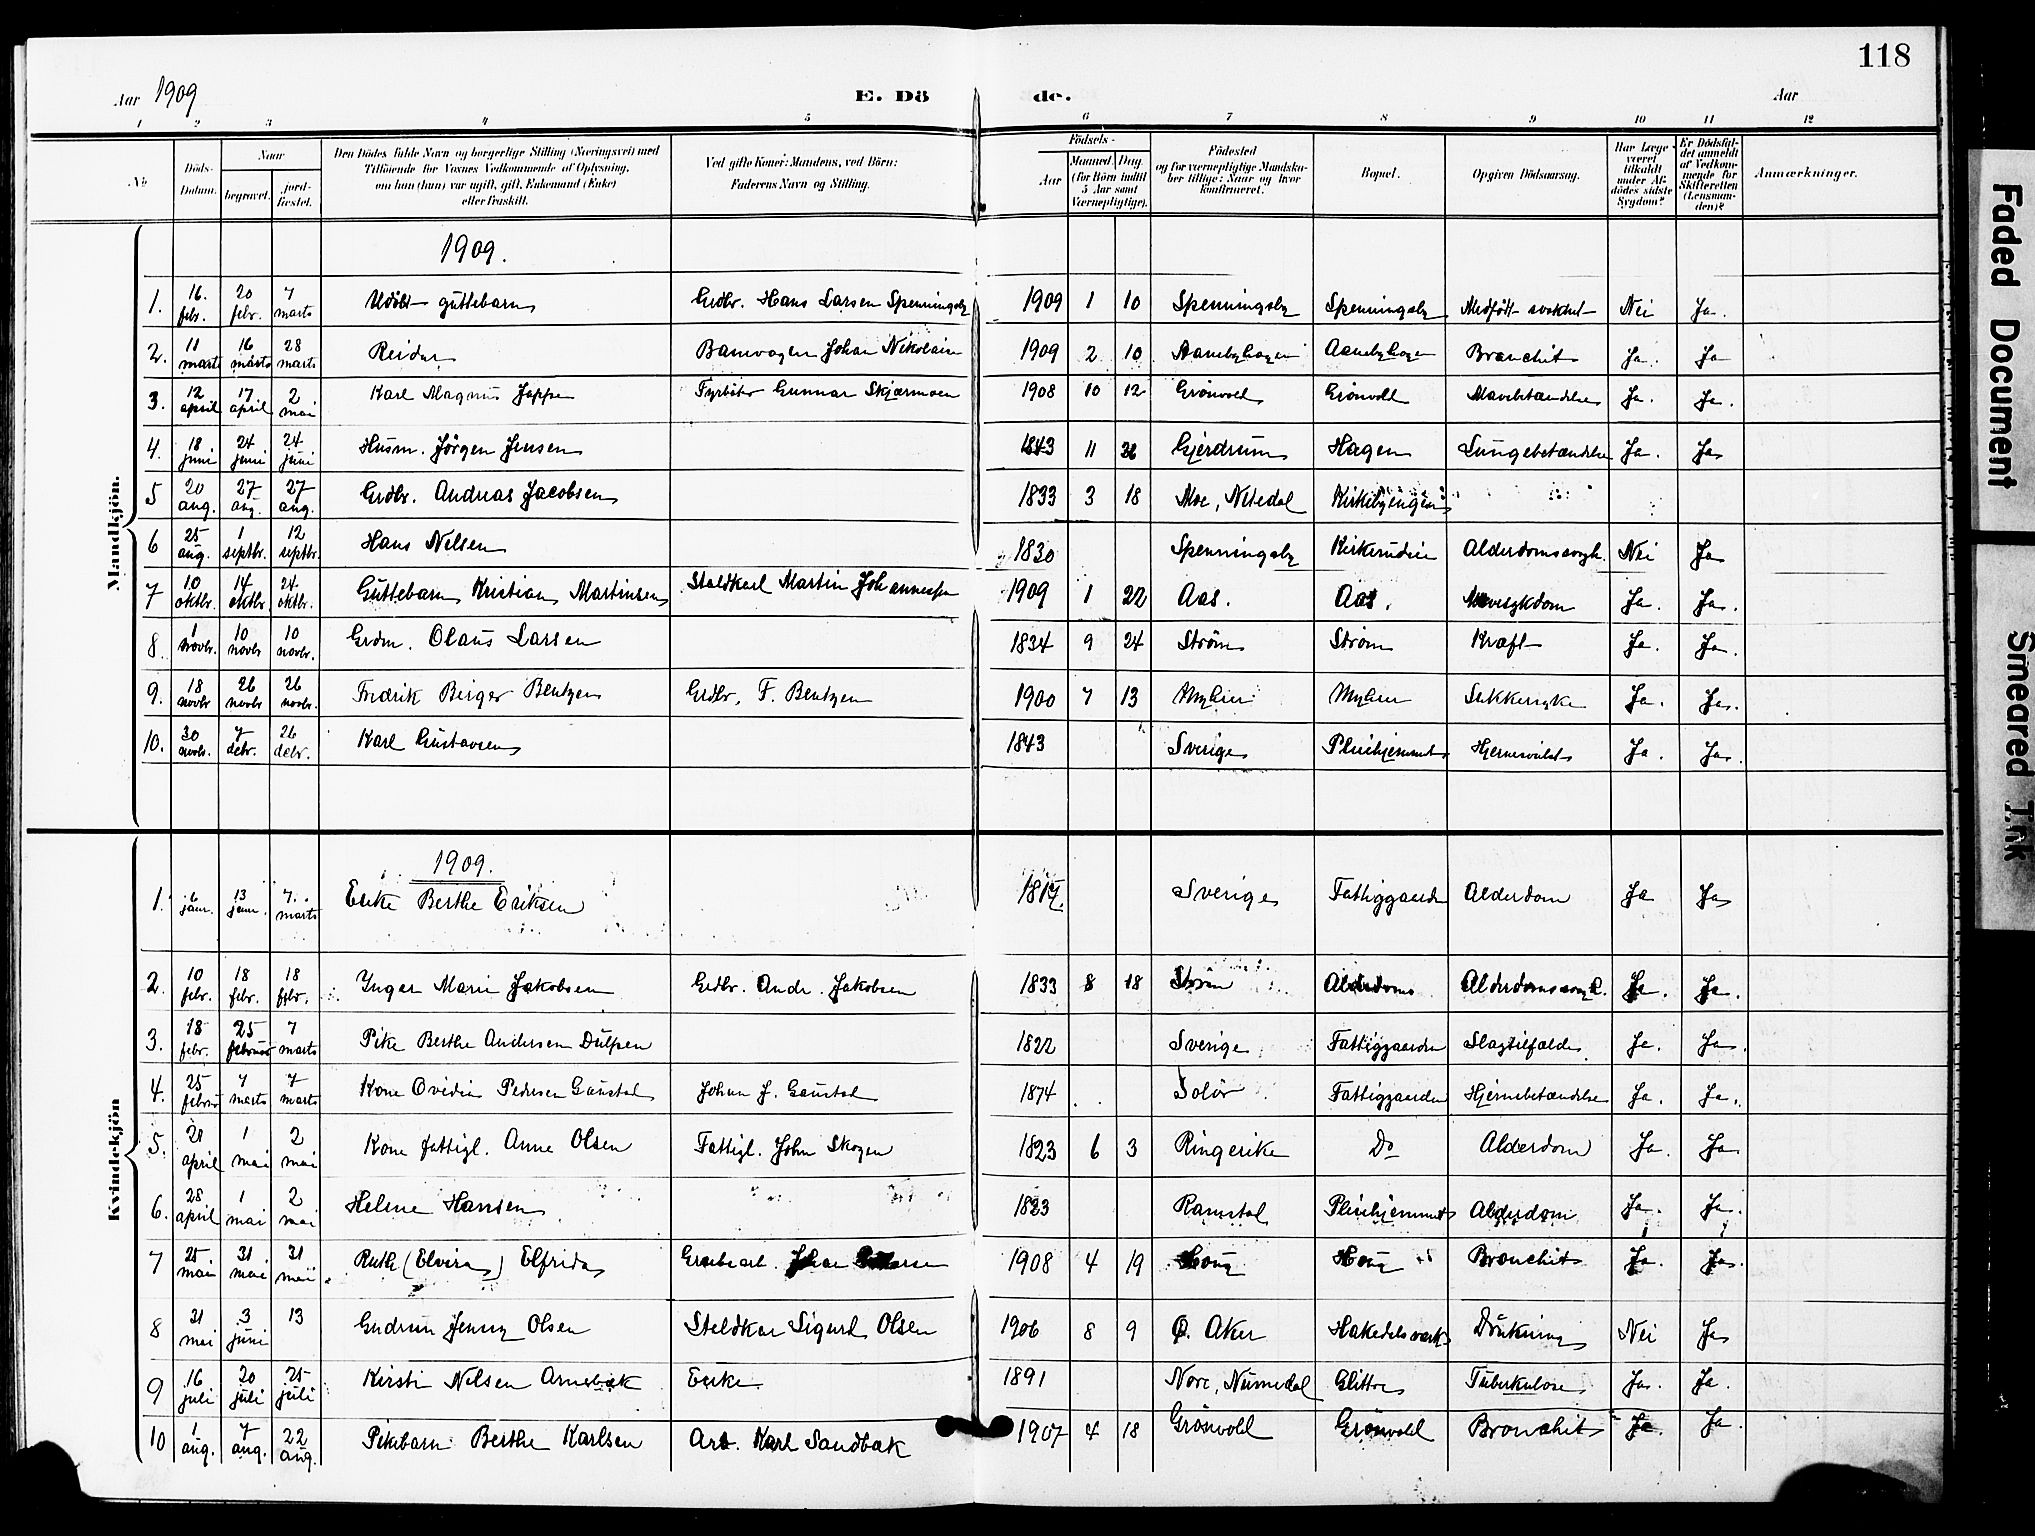 118
Aar 1909
E. Döde.
Aar
1 2 3 4 5 6 7 8 9 10 11 12
No
Döds-Datum.
Naar
begravet.
jord-fæstet.
Den Dödes fulde Navn og borgerlige Stilling (Næringsvei) med Tilföiende for Voxnes Vedkommende af Oplysning, om han (hun) var ugift, gift, Enkemand (Enke) eller fraskilt.
Ved gifte Koner: Mandens, ved Börn: Faderens Navn og Stilling.
Födsels-
Aar
Maaned. Dag.
(for Börn indtil 5 Aar samt Værnepligtige).
Födested og for værnepligtige Mandskaber tillige: Naar og hvor konfirmeret.
Bopæl.
Opgiven Dödsaarsag.
Har Læge været tilkaldt under Afdödes sidste Sygdom?
Er Dödsfaldet anmeldt af Vedkommende for Skifteretten (Lensmanden)?
Anmærkninger.
Mandkjön.
1909.
1. 16. febr. 20 febr. 7 marts Udöbt guttebarn Grdbr. Hans Larsen Spenningsby 1909 1 10 Spenningsby Spenningsby Medfött svakhet Nei Ja.
2. 11 marts 16 marts 28 marts Reidar Banevogter Johan Nikolaisen 1909 2 10 Aanebyhagen Aanebyhagen Bronchit Ja. Ja
3. 12 april 17 april 2 mai Karl Magnus Fyrböter Gunnar Skjærmoen 1908 10 12 Grönvold Grönvold Mavebetændelse Ja. Ja.
4. 18 juni 24 juni 24 juni Husm. Jörgen Jensen 1843 11 Gjerdrum Hagen Lungebetændelse Ja. Ja
5 20 aug. 27 aug. 27 aug. Grdbr. Andreas Jacobsen 1833 3 18 Moe, Nitedal Kirkebyengen
6 25 aug. 1 septbr. 12 septbr. Hans Nilsen 1830 Spenningsby Kirkerudeie Alderdomssvagh. Nei Ja
7 10 oktbr. 14 oktbr. 24 oktbr. Guttebarn Kristian Martinsen Staldkarl Martin Johannessen 1909 1 22 Aas. Aas. Mavesykdom Ja. Ja.
8. 1 novbr. 10 novbr 10 novbr. Grdm. Olaus Larsen 1834 9 24 Ström Ström Kræft Ja. Ja.
9. 18 novbr 26 novbr 26 novbr. Fredrik Birger Bentzen Grdbr. F. Bentzen 1900 7 13 Myhrer Myhrer Sukkersyke Ja. Ja.
10. 30 novbr. 7 debr. 26 debr. Karl Gustavsen 1843 Sverige Pleiehjemmet Hjernesvulst Ja. Ja.
Kvindekjön
1909.
1. 6 janr. 13 janr. 7. marts Enke Berthe Eriksen 1817. Sverige Fattiggaarden Alderdom Ja Ja
2. 10 febr. 18 febr. 18 febr. Inger Marie Jakobsen Grdbr. Andr. Jakobsen 1833 8 18 Ström Alderdomssvagh. Ja. Ja.
3. 18 febr. 25 februar 7 marts Pike Berthe Andersen 1822 Sverige Fattiggaarden Slagtilfælde Ja. Ja.
4. 25 februar 7 marts 7 marts Kone Ovidia Pedersen Gaustad Johan J. Gaustad 1874 Solör Fattiggaarden Hjernebetændelse Ja. Ja.
5. 21 april 1 mai 2 mai Kone fattigl. Anne Olsen Fattigl. John Skogen 1823 6 3 Ringerike Do Alderdom Ja. Ja
6. 28 april 1 mai 2 mai Helene Hansen 1823 Ramstad Pleiehjemmet Alderdom Ja. Ja.
7 25 mai 31 mai 31 mai Ruth (Elvira) Elfrida Johan 1908 4 19 Houg Houg Bronchit Ja. Ja.
8 31 mai 3 juni 13 Gudrun Jenny Olsen Staldkar Sigurd Olsen 1906 8 9 Ö. Aker Hakedals verk Drukning Nei Ja
9 16 juli 20 juli 25 juli Kirsti Nilsen Arnebæk Enke 1891 Nore, Numedal Glittre Tuberkulose Ja. Ja.
10 1 aug. 7 aug. 22 aug. Pikebarn Berthe Karlsen Arb. Karl Sandbæk 1907 4 18 Grönvold Grönvold Bronchit Ja. Ja.
Faded Document
Smeared Ink